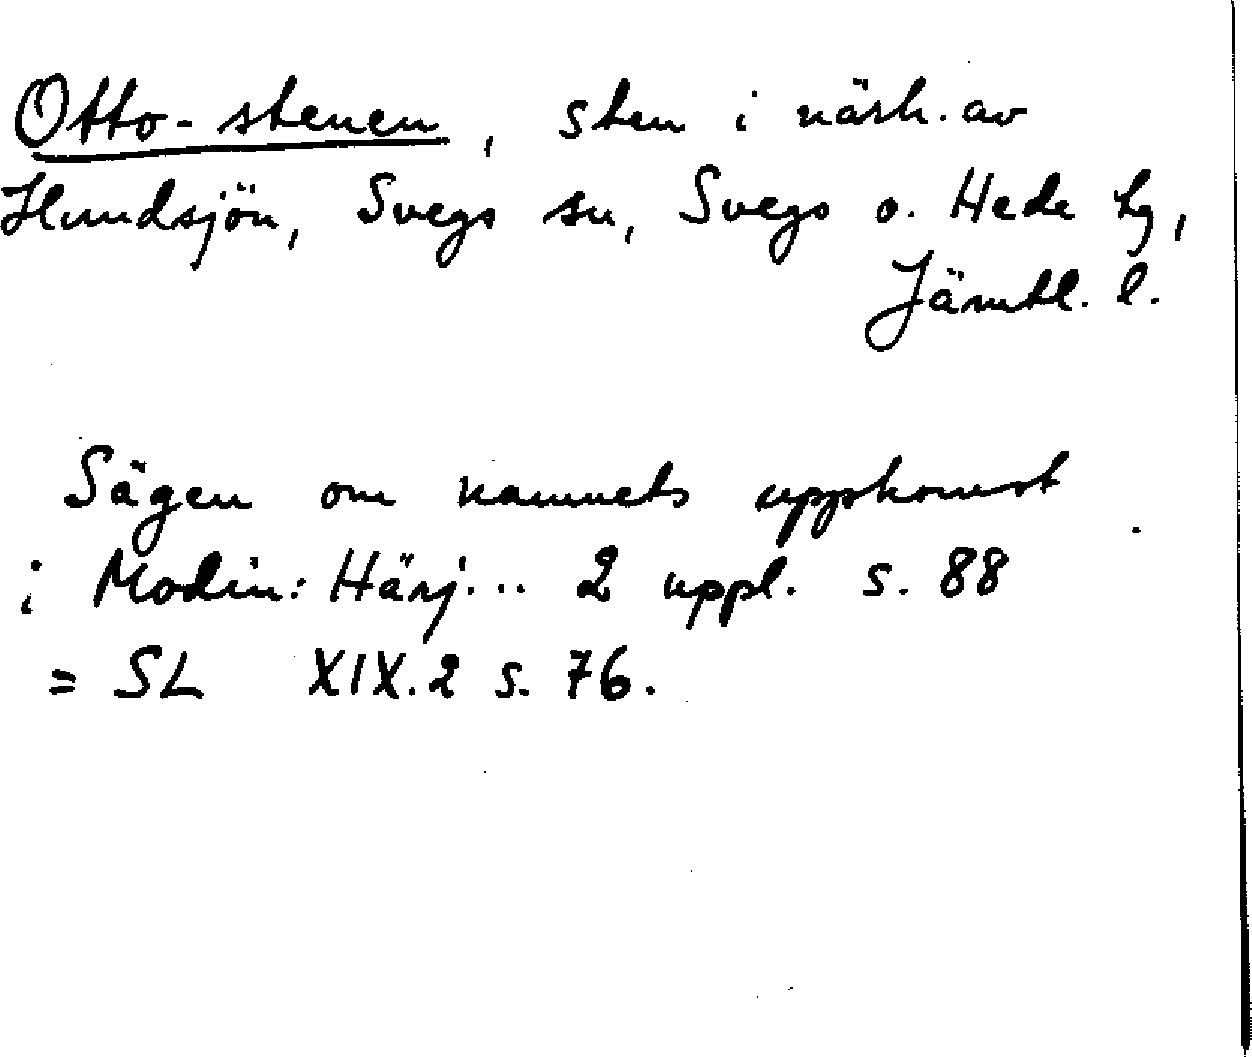 Otto-stenen, sten i närh. av
Hundsjön, Svegs sn, Svegs o. Hede tg,
Jämtl. l.
Sägen om namnets uppkomst
i Modin: Härj... 2 uppl. s. 88
= SL XIX.2 s. 76.